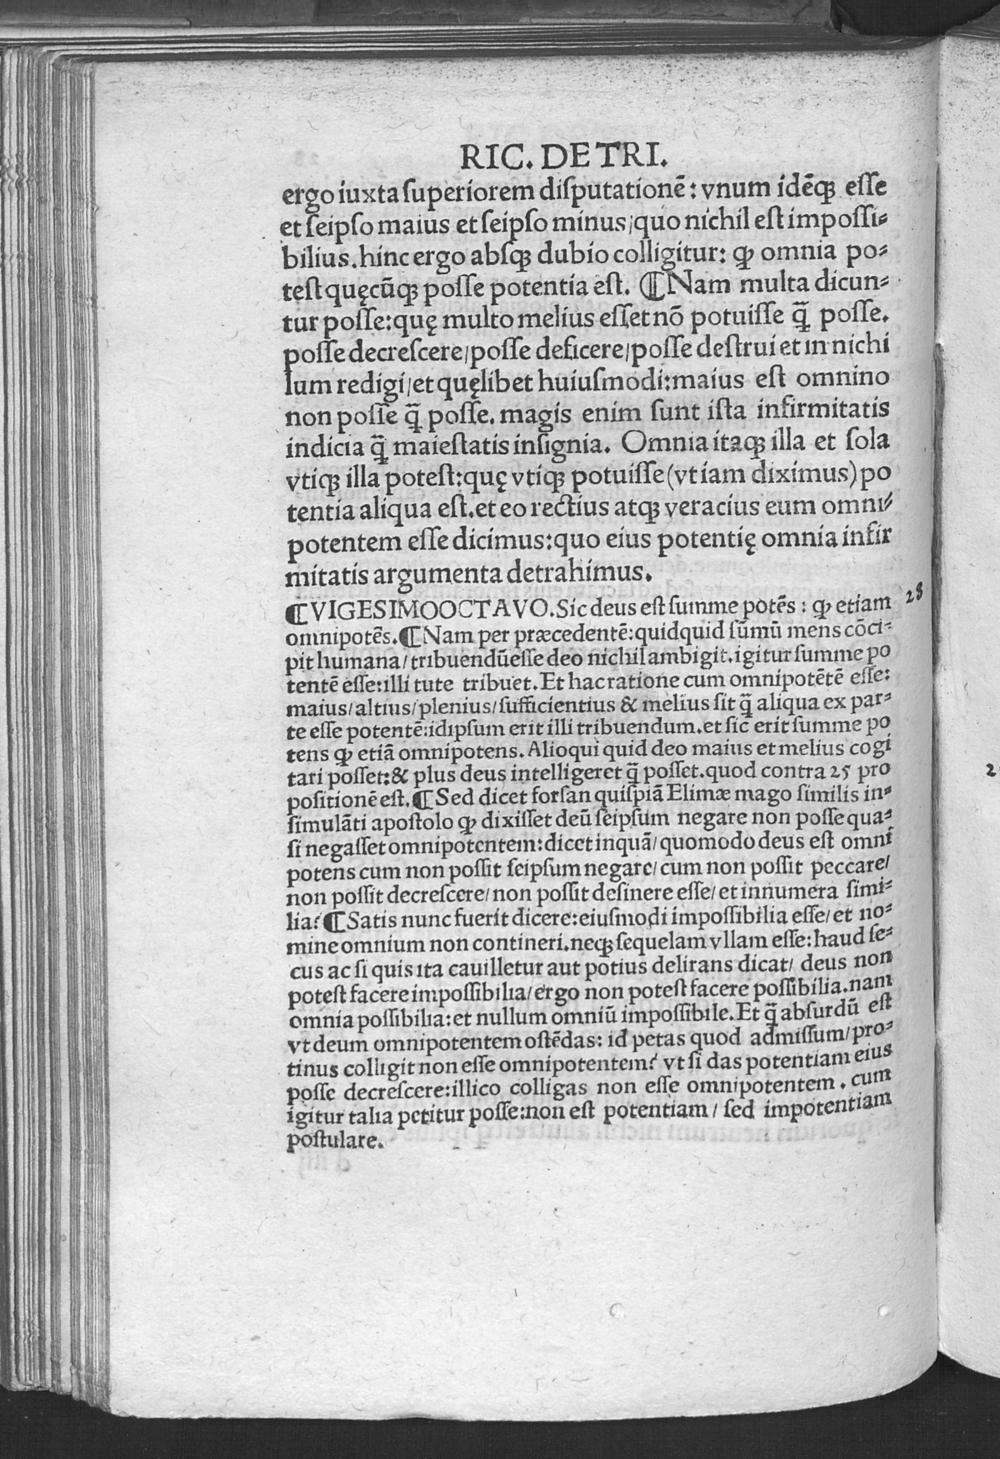 RIC. DE TRI.
ergo iuxta ſuperiorem diſputationē: vnum idēqꝫ eſſe
et ſeipſo maius et ſeipſo minus/quo nichil eſt impoſſi⸗
bilius. hinc ergo abſqꝫ dubio colligitur: ꝙ omnia po⸗
teſt quęcūqꝫ poſſe potentia eſt. ⸿Nam multa dicun⸗
tur poſſe: quę multo melius eſſet nō potuiſſe q̄ poſſe.
poſſe decreſcere/poſſe deficere/poſſe deſtrui et in nichi
lum redigi/et quęlibet huiuſmodi: maius eſt omnino
non poſſe q̄ poſſe. magis enim ſunt iſta infirmitatis
indicia q̄ maieſtatis inſignia. Omnia itaqꝫ illa et ſola
vtiqꝫ illa poteſt: quę vtiqꝫ potuiſſe (vt iam diximus) po
tentia aliqua eſt. et eo rectius atqꝫ veracius eum omni⸗
potentem eſſe dicimus: quo eius potentię omnia infir
mitatis argumenta detrahimus.
⸿VIGESIMOOCTAVO. Sic deus eſt ſumme potēs: ꝙ etiam 28
omnipotēs. ⸿Nam per præcedentē: quidquid ſūmū mens cōci⸗
pit humana/tribuendū eſſe deo nichil ambigit. igitur ſumme po
tentē eſſe: illi tute tribuet. Et hac ratione cum omnipotētē eſſe:
maius/altius/plenius/ſufficientius & melius ſit q̄ aliqua ex par⸗
te eſſe potentē: idipſum erit illi tribuendum. et ſic erit ſumme po
tens ꝙ etiā omnipotens. Alioqui quid deo maius et melius cogi
tari poſſet: & plus deus intelligeret q̄ poſſet. quod contra 25 pro
poſitionē eſt. ⸿Sed dicet forſan quiſpiā Elimæ mago ſimilis in⸗
ſimulāti apoſtolo ꝙ dixiſſet deū ſeipſum negare non poſſe qua⸗
ſi negaſſet omnipotentem: dicet inquā/quomodo deus eſt omni
potens cum non poſſit ſeipſum negare/cum non poſſit peccare/
non poſſit decreſcere/non poſſit deſinere eſſe/et innumera ſimi⸗
lia? ⸿Satis nunc fuerit dicere: eiuſmodi impoſſibilia eſſe/et no⸗
mine omnium non contineri. neqꝫ ſequelam vllam eſſe: haud ſe⸗
cus ac ſi quis ita cauilletur aut potius delirans dicat/ deus non
poteſt facere impoſſibilia/ergo non poteſt facere poſſibilia. nam
omnia poſſibilia: et nullum omniū impoſſibile. Et q̄ abſurdū eſt
vt deum omnipotentem oſtēdas: id petas quod admiſſum/pro⸗
tinus colligit non eſſe omnipotentem? vt ſi das potentiam eius
poſſe decreſcere: illico colligas non eſſe omnipotentem. cum
igitur talia petitur poſſe: non eſt potentiam/ ſed impotentiam
poſtulare.